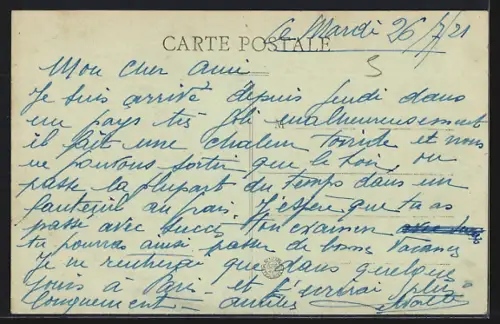 Le Mardi 26/7/21
CARTE POSTALE
5
Mon cher ami
Je suis arrivé depuis jeudi dans
un pays très joli malheureusement
M
il fait une chaleur torride et nous
ne pouvons sortir que le soir, on
passe la plupart du temps dans un
fauteuil au frais. J'espère que tu as
passé avec succès ton examen
tu pourras ainsi passer de bonnes vacances
Je ne rentrerai que dans quelques
jours à Paris et t'écrirai plus
longuement